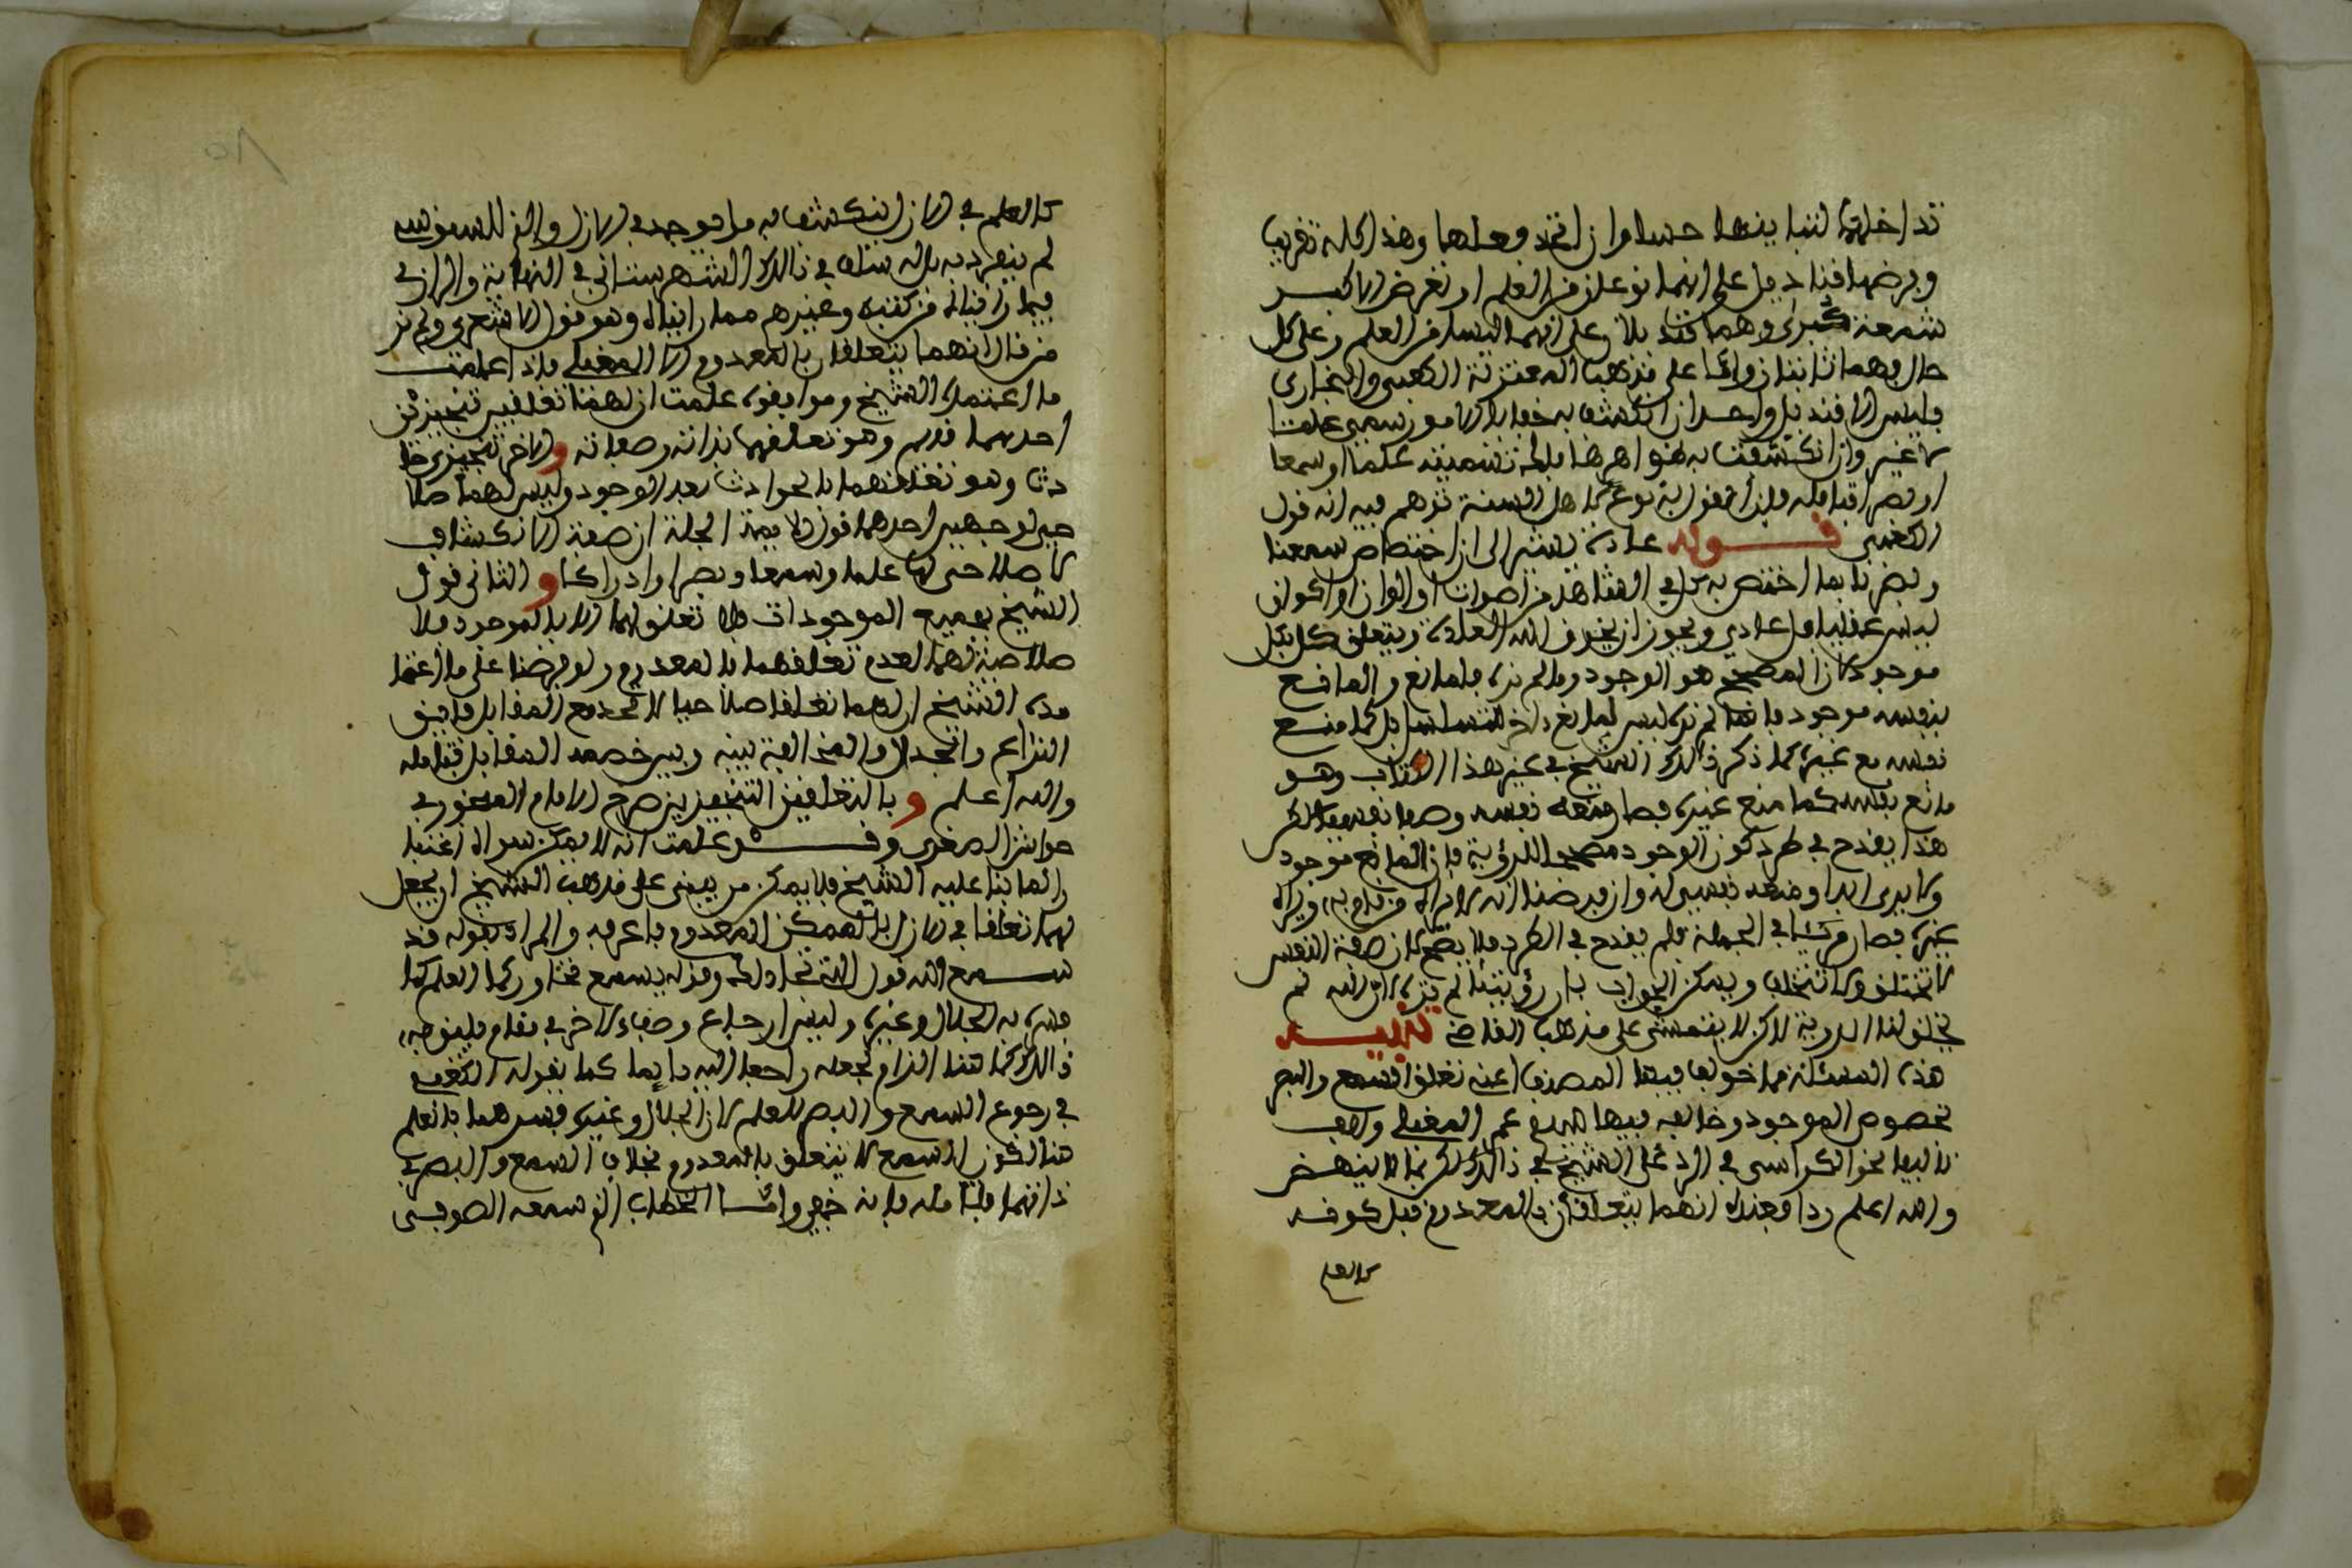 تداخلهما لتباينهما حسا وان اتحد فعلهما وهذا كله تقريب
وبرضها فنا دخل على انهما نوعان من العلم او تفرض الاكبر
شمعة كبرى وهما قنديلان وعلى انهما ليسا من العلم وعلى كل
حال وهما ثابتان واما على مذهب المعتزلة الكعبي والنجاري
فليس الا قنديل واحد ان انكشف به خفايا الامور سمي علما
لا غير وان انكشفت به ظواهرها فلك تسميته علما او سمعا
او بصرا فتأمله فإن المقول به نوع من اهل السنة توهم فيه انه قول
الكعبي قوله عادة يشير الى ان اختصاص سمعنا
وبصرنا بما اختص به في الشاهد من اصوات والوان واكوان
ليس عقليا بل عادي ويجوز ان يخرق الله العادة ويتعلق كل بكل
موجود لان المصحح هو الوجود وما لم نره فلمانع والمانع
بنفسه موجود فإنما لم نره ليس لمانع آخر للتسلسل بل كما منع
نفسه مع غيره كما ذكر ذلك الشيخ في غير هذا الكتاب وهو
مانع بنفسه كما منع غيره فصار منعه نفسه وصفا نفسيا لكن
هذا يقدح في طرد كون الوجود مصححا للرؤية فإن المانع موجود
ولا يرى ابدا ومنعه نفسي له وان فرضنا انه لا يراه من قام به ويراه
غيره فصار مرئيا في الجملة فلم يقدح في الطرد فلا يصح لان صفة النفس
لا تختلف ولا تتخلف ويمكن الجواب بان رؤيتنا لم نره لان الله لم
يخلق لنا الرؤية لاكن لا يتمشى على مذهب القاضي تنبيه
هذه المسئلة مما خولف فيها المصنف اعني تعلق السمع والبصر
بخصوص الموجود وخالفه فيها عم المغيلي والف
تاليفا نحو الكراس في الرد على الشيخ في ذالك لكن بما لا ينهض
والله اعلم ردا فعنده انهما يتعلقان بالمعدوم قبل كونه
كالعلم
كالعلم في الازل انكشف به ما يوجد في الازل والذي للسنوسي
لم ينفرد به بل له سلف في ذالك الشهرستاني في النهاية والرازي
فيما رأينا له من كتبه وغيرهم مما رأيناه وهو قول الاشعري ولم نر
من قال انهما يتعلقان بالمعدوم الا المغيلي فإذا علمت
ما اعتمده الشيخ وموافقوه علمت ان لهما تعلقين تنجيزيين
احدهما قديم وهو تعلقهما بذاته وصفاته والاخر تنجيزي حا
دث وهو تعلقهما بالحوادث بعد الوجود وليس لهما صلا
حي لوجهين احدهما قول الايمة الجلة ان صفة الانكشاف
لا صلاحي لها علما وسمعا وبصرا وادراكا والثاني قول
الشيخ بجميع الموجودات فلا تعلق لهما الا بالموجود فلا
صلاحية لهما لعدم تعلقهما بالمعدوم ولو فرضنا على ما اعتمـ
ده الشيخ ان لهما تعلقا صلاحيا لا تحد مع المقابل فأين
النزاع والجدال والمخالفة بينه وبين خصمه المقابل فتأمله
والله اعلم وبالتعلقين التنجيزيين صرح الامام المنجور في
حواشي الصغرى وقـــد علمت انه لا يمكن سواه اعتبا
را لما بنا عليه الشيخ فلا يمكن من يبني على مذهب الشيخ ان يجعل
لهما تعلقا في الازل بالممكن المعدوم فاعرفه والمراد بقوله قد
سمع الله قول التي تجادلك وقوله يسمع تحاوركما العلم كما
فسره به الجلال وغيره وليس ارجاع وصف لاخر في مقام يليق به
ذالك كما هنا الزام بجعله راجعا اليه دايما كما يقوله الكعبي
في رجوع السمع والبصر للعلم لان الجلال وغيره فسرهما بالعلم
هنا لكون السمع لا يتعلق بالمعدوم بخلاف السمع والبصر في
ذاتهما فتأمله فإنه خفي وامـــا الخطاب الذي سمعه الصوفي